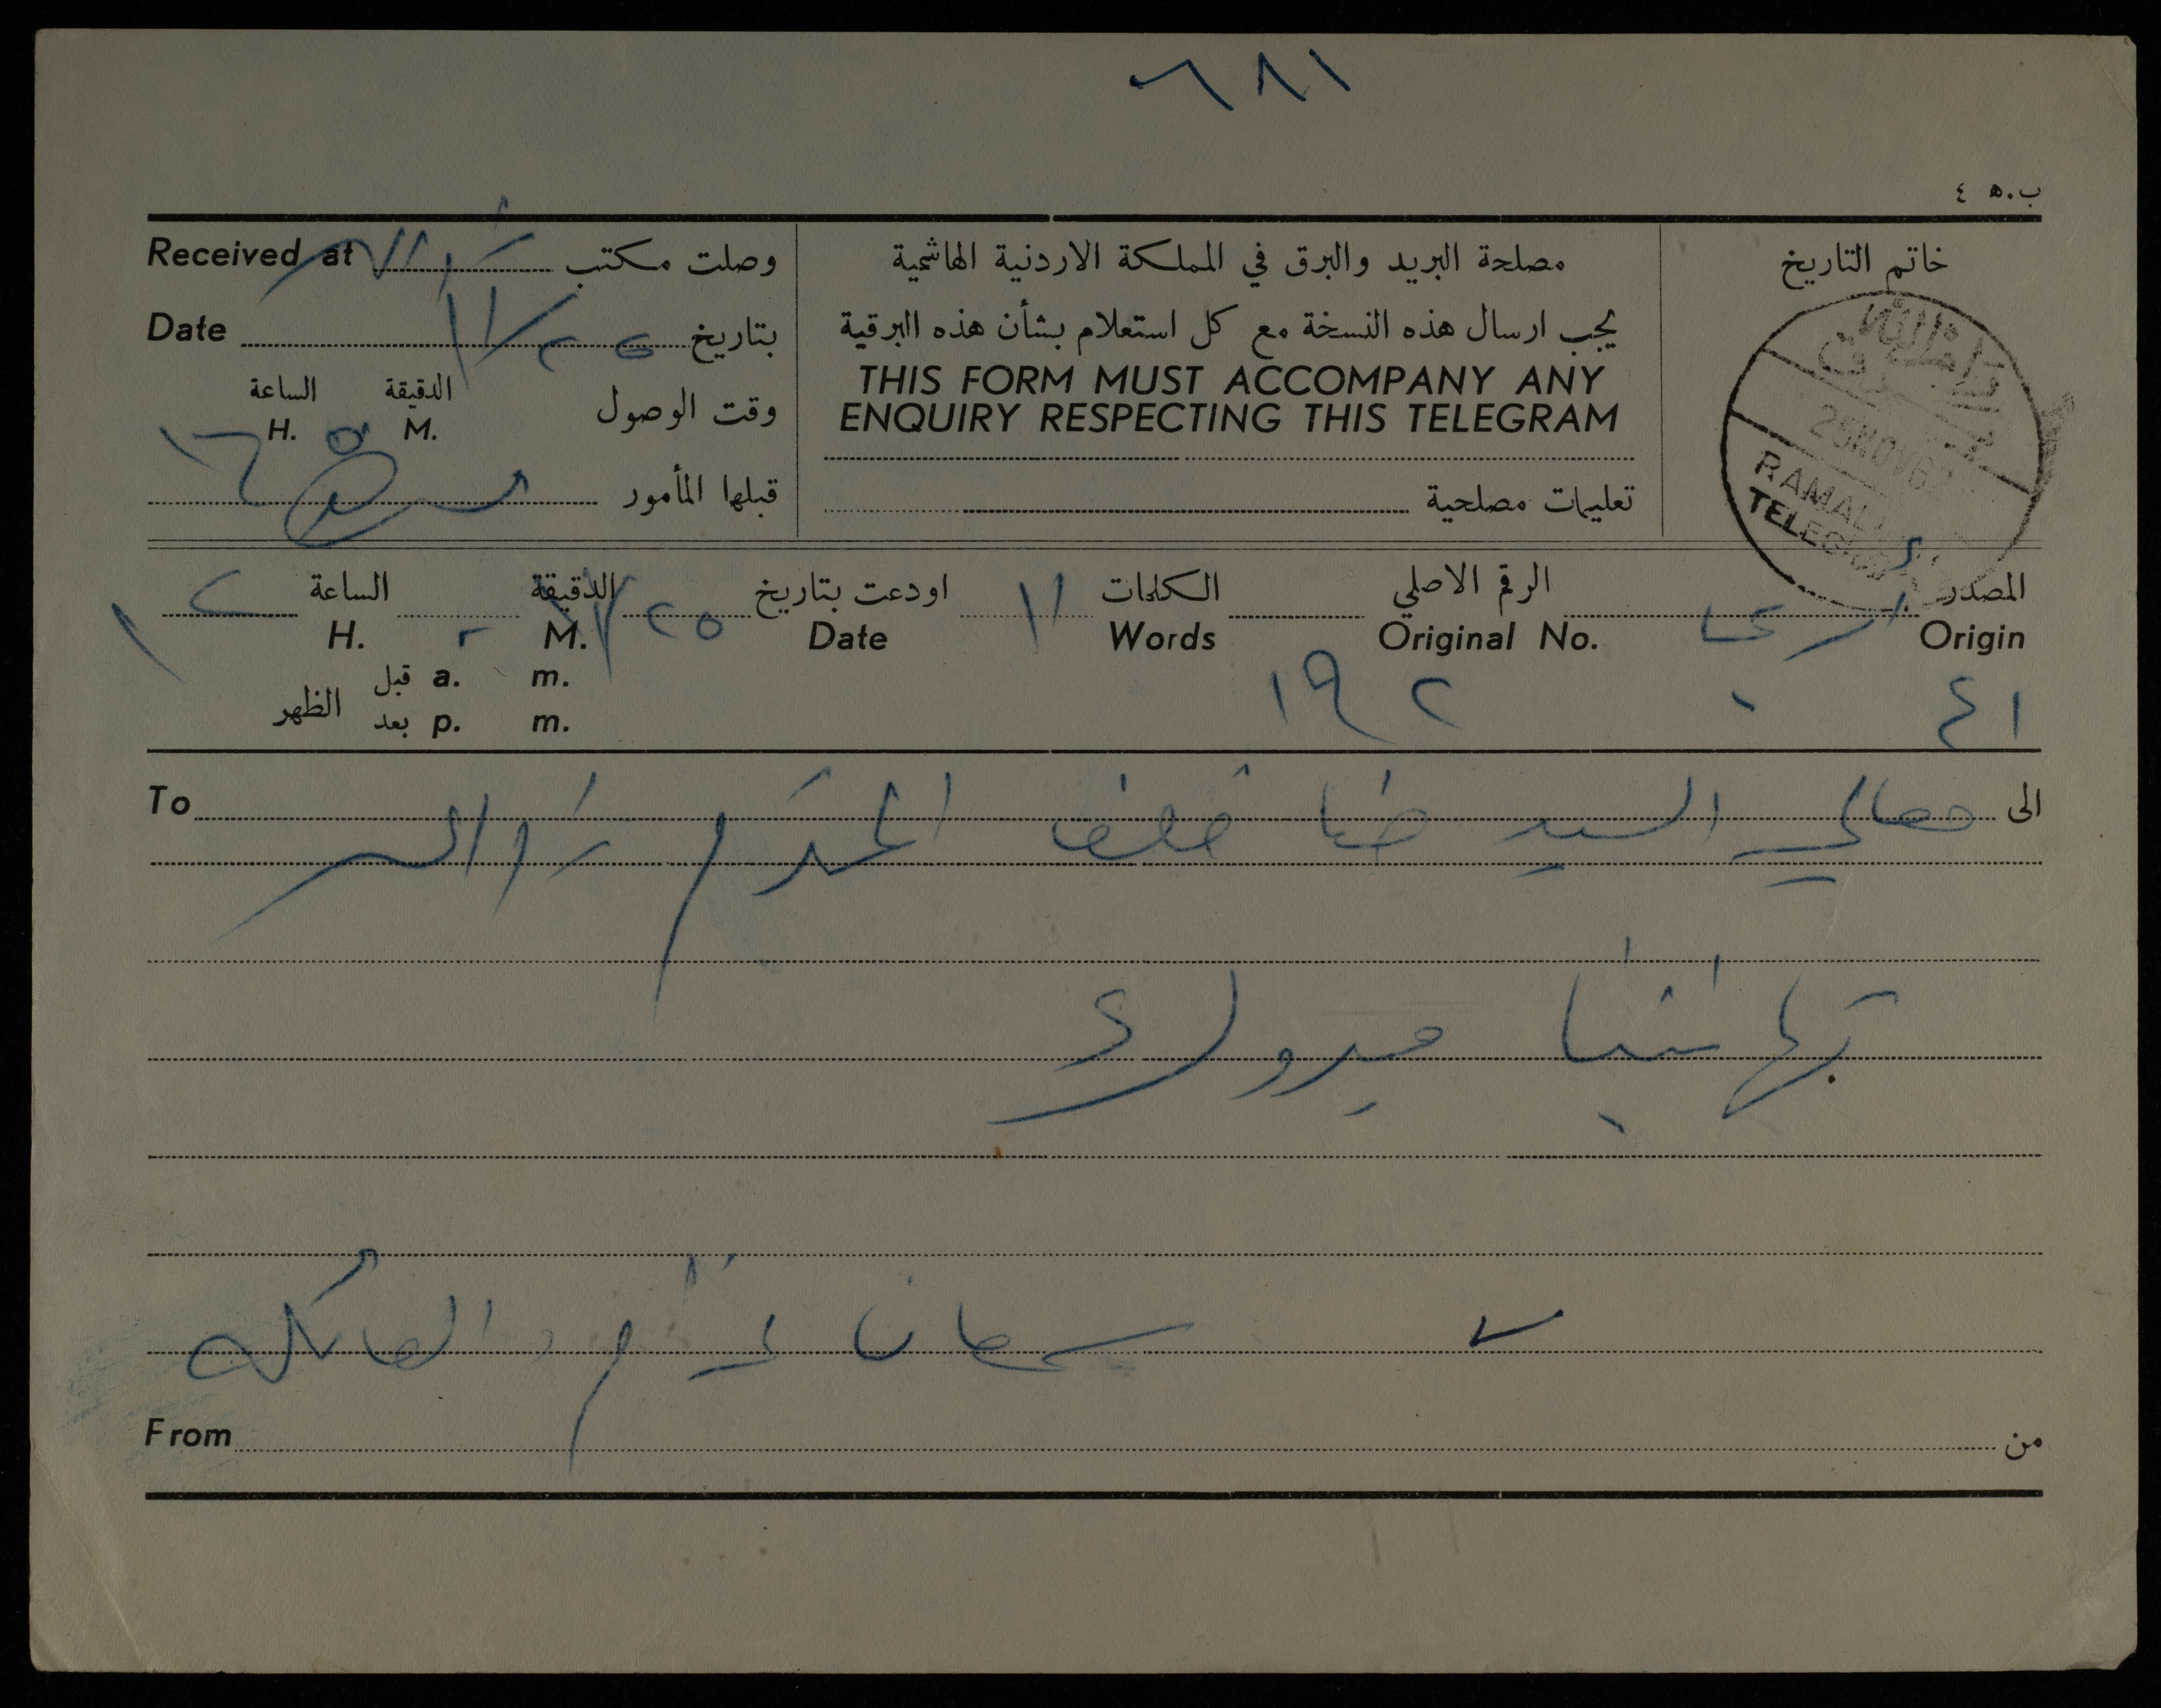 ٦٨١
ب.ه ٤
Received at رام الله وصلت مكتب
Date ١١/٢٥ بتاريخ
الساعة الدقيقة
H. M. وقت الوصول
١٦ ٥
قبلها المأمور
مصلحة البريد والبرق في المملكة الاردنية الهاشمية
يجب ارسال هذه النسخة مع كل استعلام بشأن هذه البرقية
THIS FORM MUST ACCOMPANY ANY
ENQUIRY RESPECTING THIS TELEGRAM
تعليمات مصلحية
خاتم التاريخ
رام الله
برق
25 NOV 6
RAMALLAH
TELEGRAPH
المصدر أريحا الرقم الاصلي الكلمات ١١ اودعت بتاريخ ١١/٢٥ الدقيقة الساعة ١٢
Origin Original No. Words Date M. H.
٤١ ٢ ١٩
قبل a. m.
الظهر
بعد p. m.
الى معالي السيد خلف المحترم رام الله To
تهانينا مبروك
سمعان والعائلة
From من